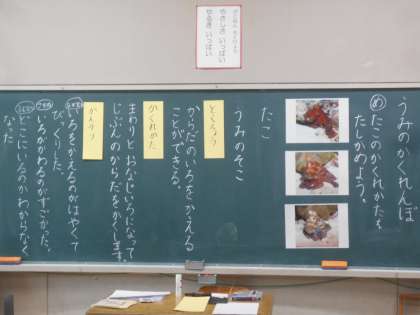 やさしさ いっぱい
やるき いっぱい
うみのかくれんぼ
め たこのかくれかたを
たしかめよう。
たこ
うみのそこ
とくちょう
からだのいろをかえる
ことができる。
かくれかた
まわりとおなじいろになって
じぶんのからだをかくします。
かんそう
いろをかえるのがはやくて
びっくりした。
いろがかわるのがすごかった。
どこにいるのかわからなく
なった